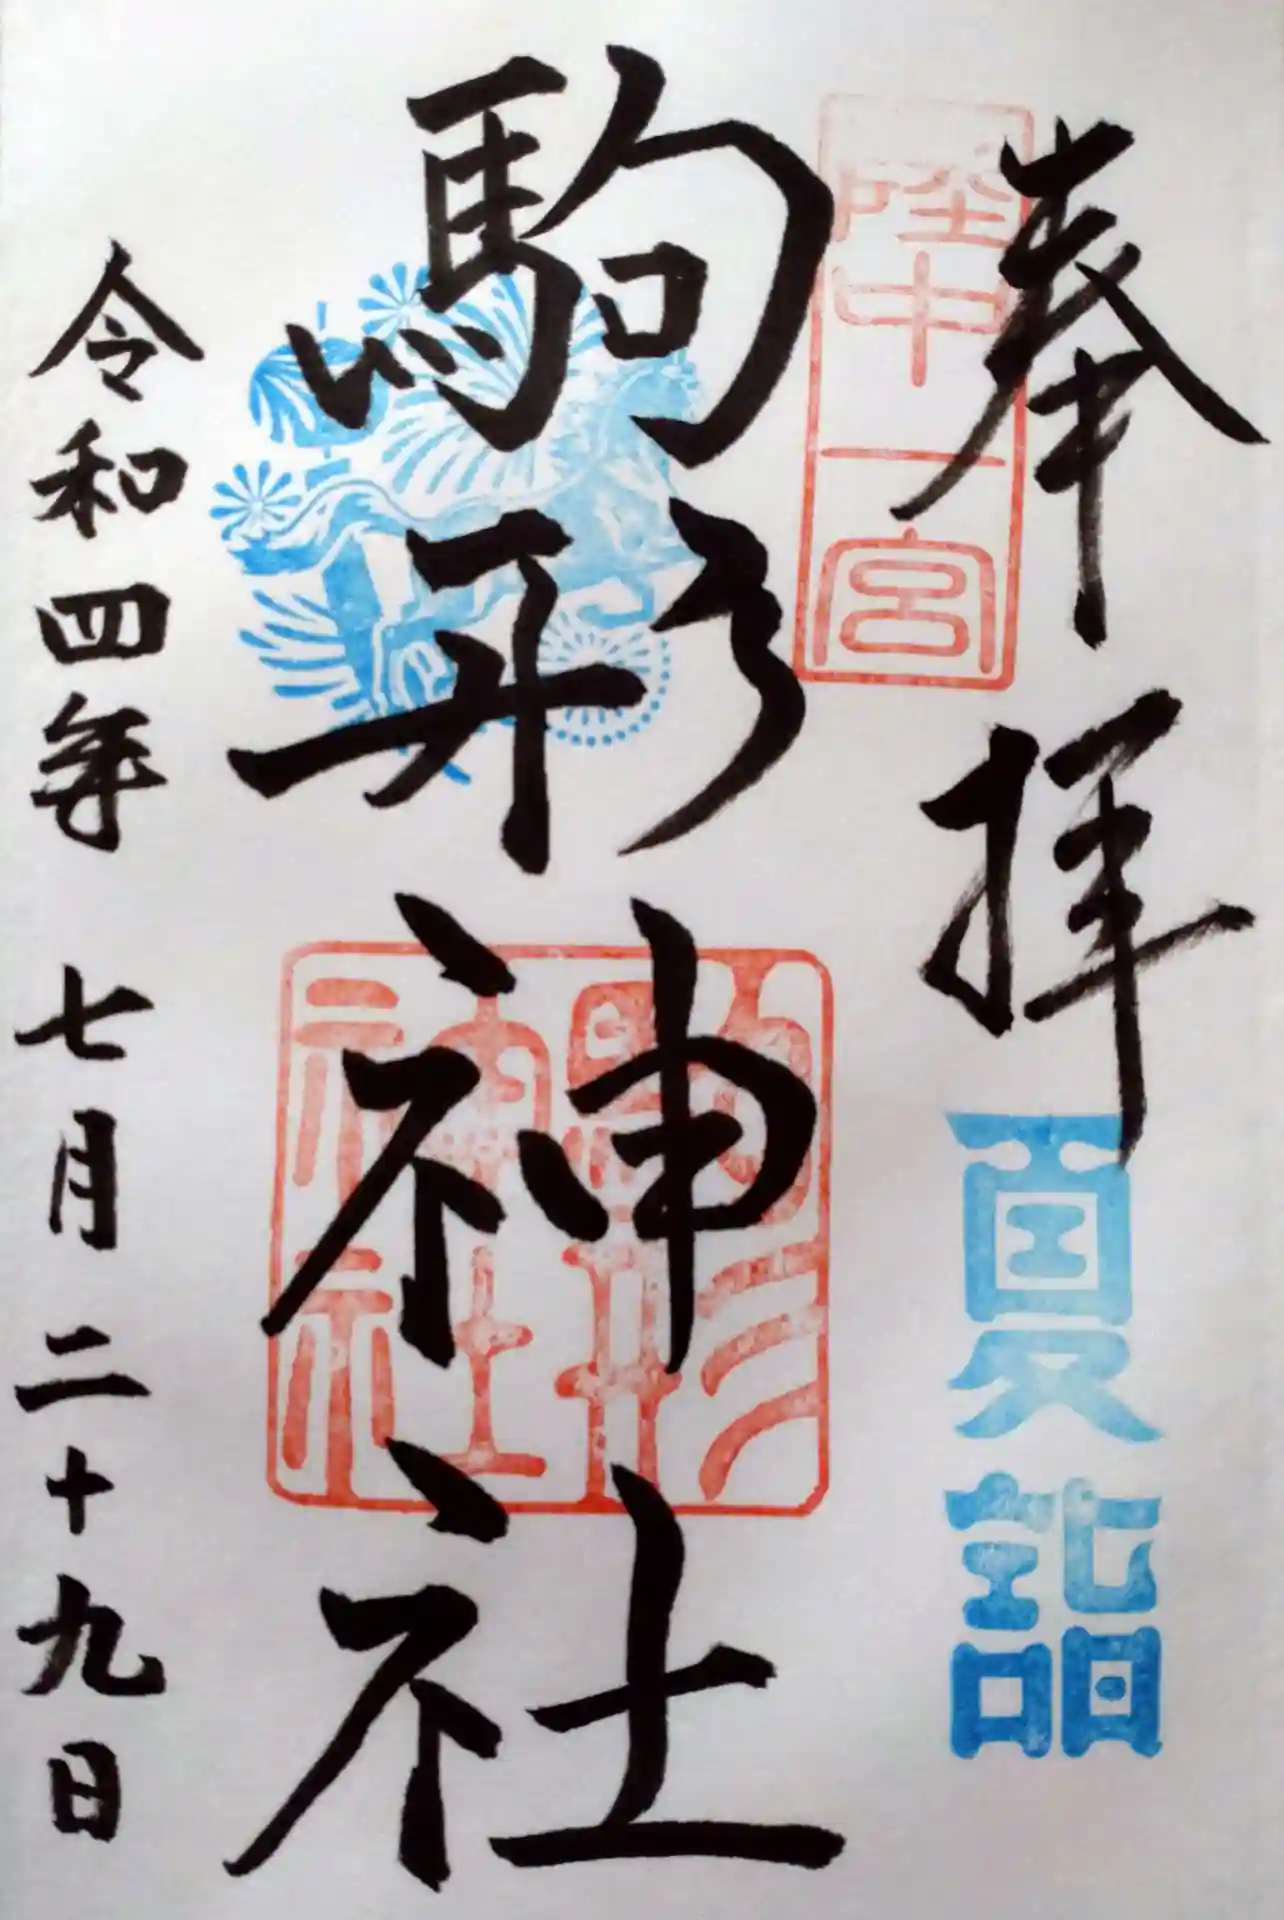 奉拝
陸中一宮
夏詣
駒形神社
駒形神社
令和四年 七月二十九日